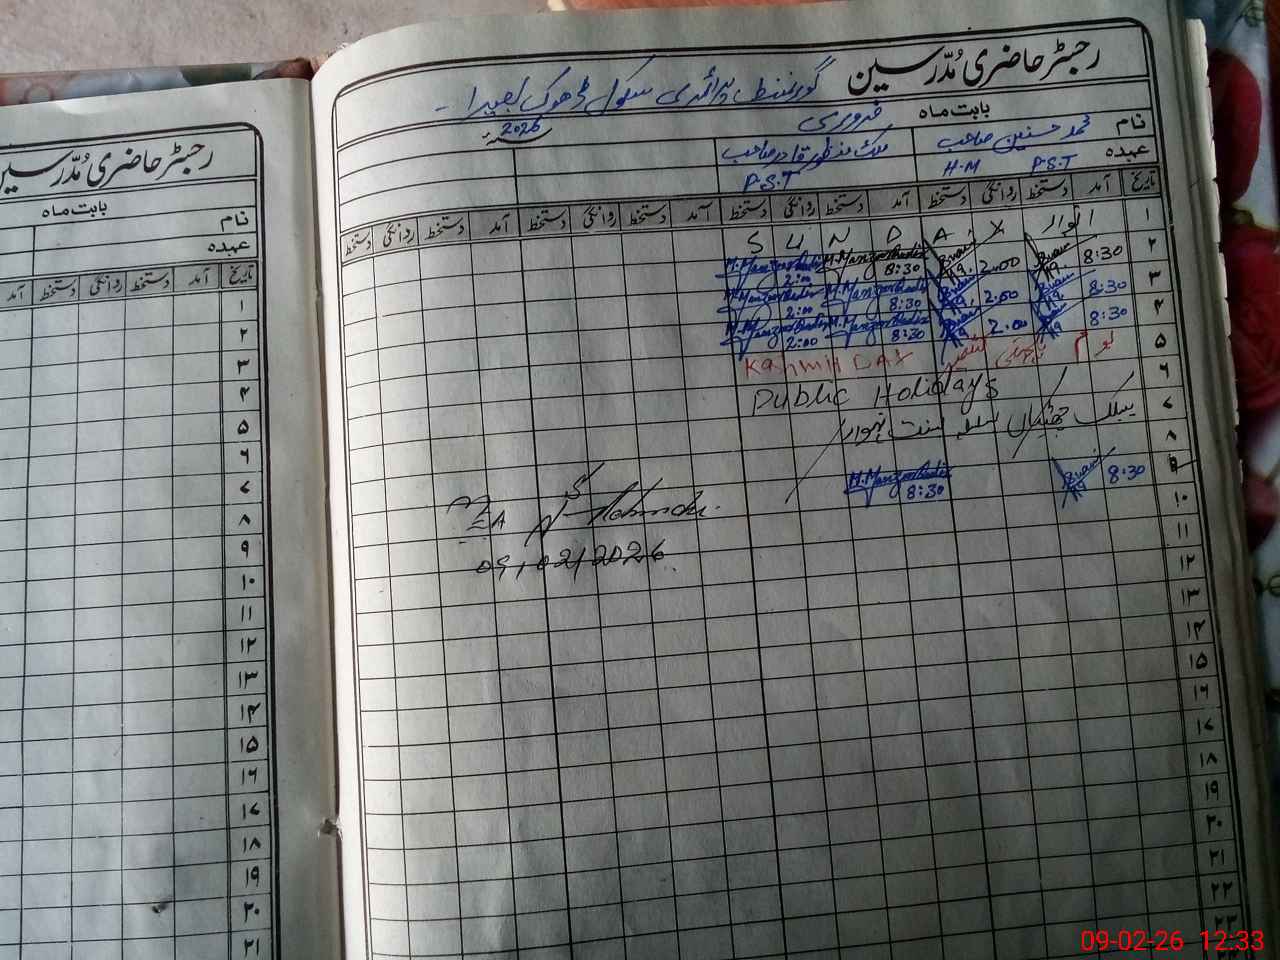 رجسٹر حاضری مُدّرسین گورنمنٹ پرائمری سکول ڈھوک
بابت ماہ فروری 2026
نام محمد حسنین صاحب ملک منظور قادر صاحب
عہدہ P.S.T H.M P.S.T
تاریخ آمد دستخط روانگی دستخط آمد دستخط روانگی دستخط آمد دستخط روانگی دستخط آمد دستخط روانگی دستخط
۱ اتوار S U N D A Y
۲ 8:30 2.00 8:30 2:00
۳ 8:30 2.00 8:30 2:00
۴ 8:30 2.00 8:30 2:00
۵ یوم یکجہتی کشمیر Kashmir DAY
۶ Public Holidays
۷ پبلک چھٹیاں بسنت تہوار
۸
۹ 8:30 M.Manzoor Qadir 8:30
۱۰
09/02/2026
۱۱
۱۲
۱۳
۱۴
۱۵
۱۶
۱۷
۱۸
۱۹
۲۰
۲۱
۲۲
۲۳
رجسٹر حاضری مُدّرسین
بابت ماہ
نام
عہدہ
تاریخ آمد دستخط روانگی دستخط آمد
۱
۲
۳
۴
۵
۶
۷
۸
۹
۱۰
۱۱
۱۲
۱۳
۱۴
۱۵
۱۶
۱۷
۱۸
۱۹
۲۰
۲۱
09-02-26 12:33